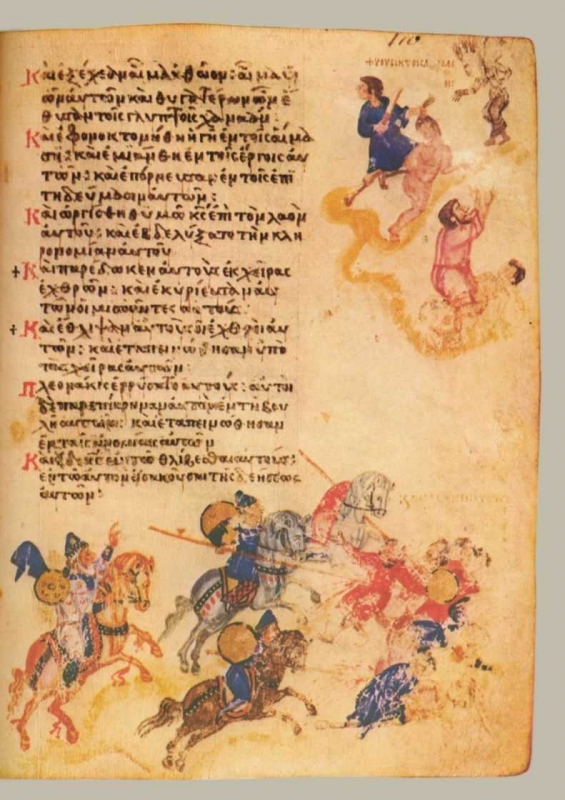 Καὶ ἐξέχεαν αἷμα ἀθῶον· αἷμα υἱ
ῶν αυτῶν καὶ θυγατέρων ὧν ἔ
θυσαν τοῖς γλυπτοῖς χαναάν:
Καὶ ἐφονοκτονήθη ἡ γῆ ἐν τοῖς αἵμα
σι: καὶ ἐμιάνθη ἐν τοῖς ἔργοις αὐ
τῶν: καὶ ἐπόρνευσαν ἐν τοῖς ἐπι
τηδεύμασιν αὐτῶν:
Καὶ ὠργίσθη θυμῶ κς ἐπὶ τὸν λαὸν
αὐτοῦ: καὶ ἐβδελύξατο τὴν κλη
ρονομίαν αυτοῦ
Καὶ παρέδωκεν αὐτοὺς εἰς χεῖρας
ἐχθρῶν: καὶ ἐκυρίευσαν αὐ
τῶν οἱ μισοῦντες αὐτούς:
Καὶ ἔθλιψαν αὐτοὺς οἱ ἐχθροὶ αὐ
τῶν: καὶ εταπεινώθησαν ὑπὸ
τὰς χεῖρας αὐτῶν:
Πλεονάκις ἐρρύσατο αὐτούς: αὐτοὶ
δὲ παρεπίκραναν αὐτὸν ἐν τῆ βου
λῆ αὐτῶν: καὶ ἐταπεινώθησαν
ἐν ταῖς ἀνομίαις αὐτῶν
Καὶ ἐν τῶ θλίβεσθαι αὐτούς:
ἐν τῶ αὐτὸν εἰσακοῦσαι τῆς δεήσεως
αὐτῶν: